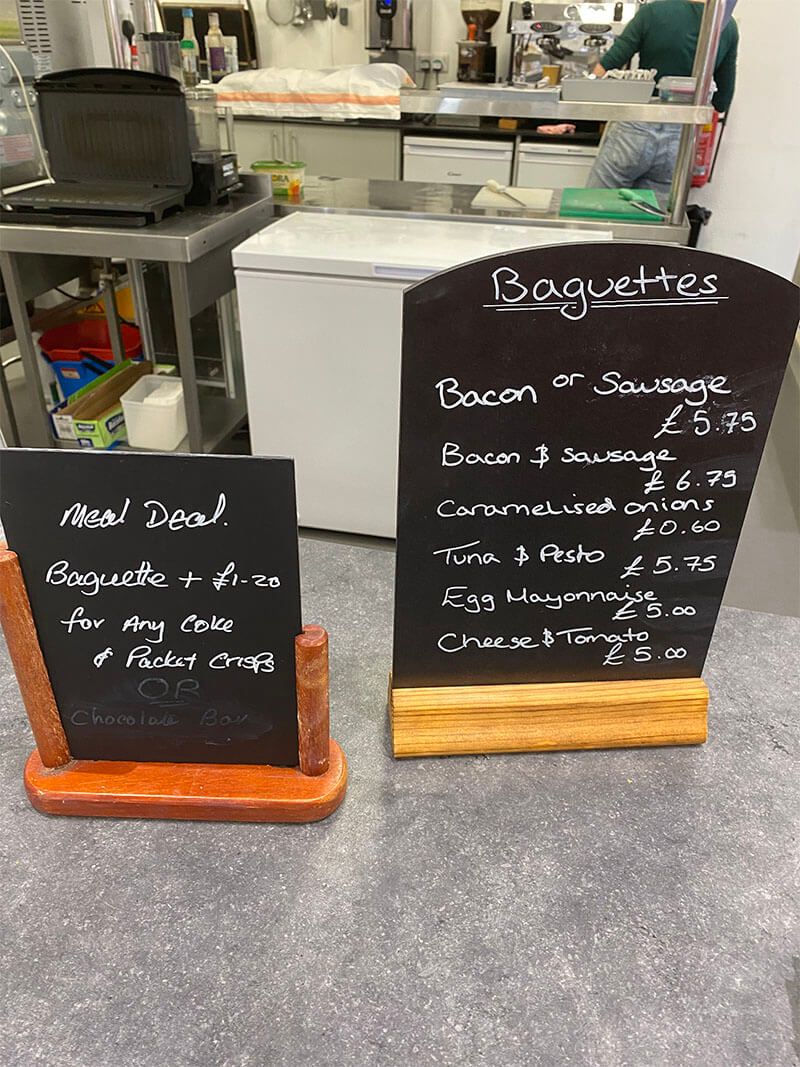 Meal Deal.
Baguette + £1-20
for Any Coke
& Packet Crisps
OR
Chocolate Bar
Baguettes
Bacon or Sausage
£5.75
Bacon & Sausage
£6.75
Caramelised onions
£0.60
Tuna & Pesto £5.75
Egg Mayonnaise
£5.00
Cheese & Tomato
£5.00